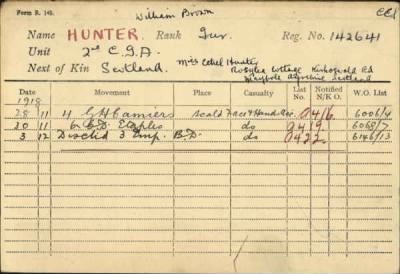 Form R. 149.
William Brown
Name HUNTER. Rank Gnr. Reg. No. 142641
Unit 2nd C.G.A.
Next of Kin Scotland. Mrs Ethel Hunter
Rosylea Cottage Kirkoswald Rd
Maybole Ayrshire Scotland
Date Movement Place Casualty List No. Notified N/K O. W.O. List
1918
28 11 4 G H Camiers Scald Face & Hand Acc. A416. 6006/4
30 11 6 C.D. Etaples do A419. 6068/7
3 12 Disch'd 3 Emp. B.D. do A422. 6146/13